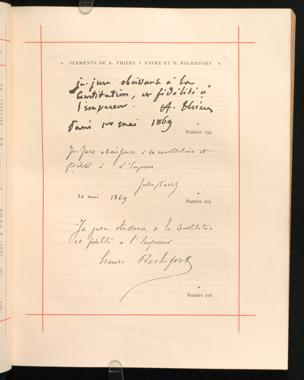 SERMENTS DE A. THIERS J. FAVRE ET H. ROCHEFORT
je jure obéissance à la
Constitution, et fidélité à
l'Empereur. A. Thiers
Paris 1er mai 1869
Numéro 199
Je jure obéissance à la constitution et
fidélité à l'Empereur
Jules Favre
10 mai 1869
Numéro 207
Je jure obéissance à la Constitution
et fidélité à l'Empereur
Henri Rochefort
Numéro 218